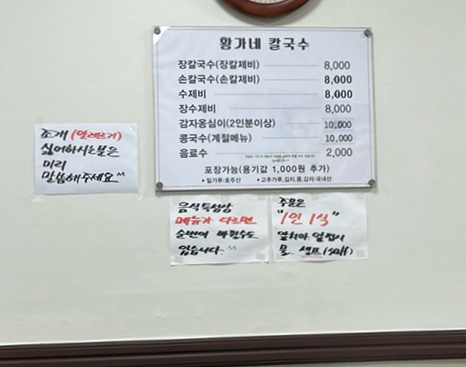 황가네 칼국수
장칼국수(장칼제비) 8,000
손칼국수(손칼제비) 8,000
수제비 8,000
장수제비 8,000
감자옹심이(2인분이상) 10,000
콩국수(계절메뉴) 10,000
음료수 2,000
포장가능(용기값 1,000원 추가)
• 밀가루:호주산 • 고추가루,김치,콩,감자:국내산
조개 (알레르기)
싫어하시는분은
미리
말씀해주세요^^
음식특성상
메뉴가 다르면
순번이 바뀔수도
있습니다.^^
주문은
"1인 1식"
앞치마, 앞접시
물 셀프(self)